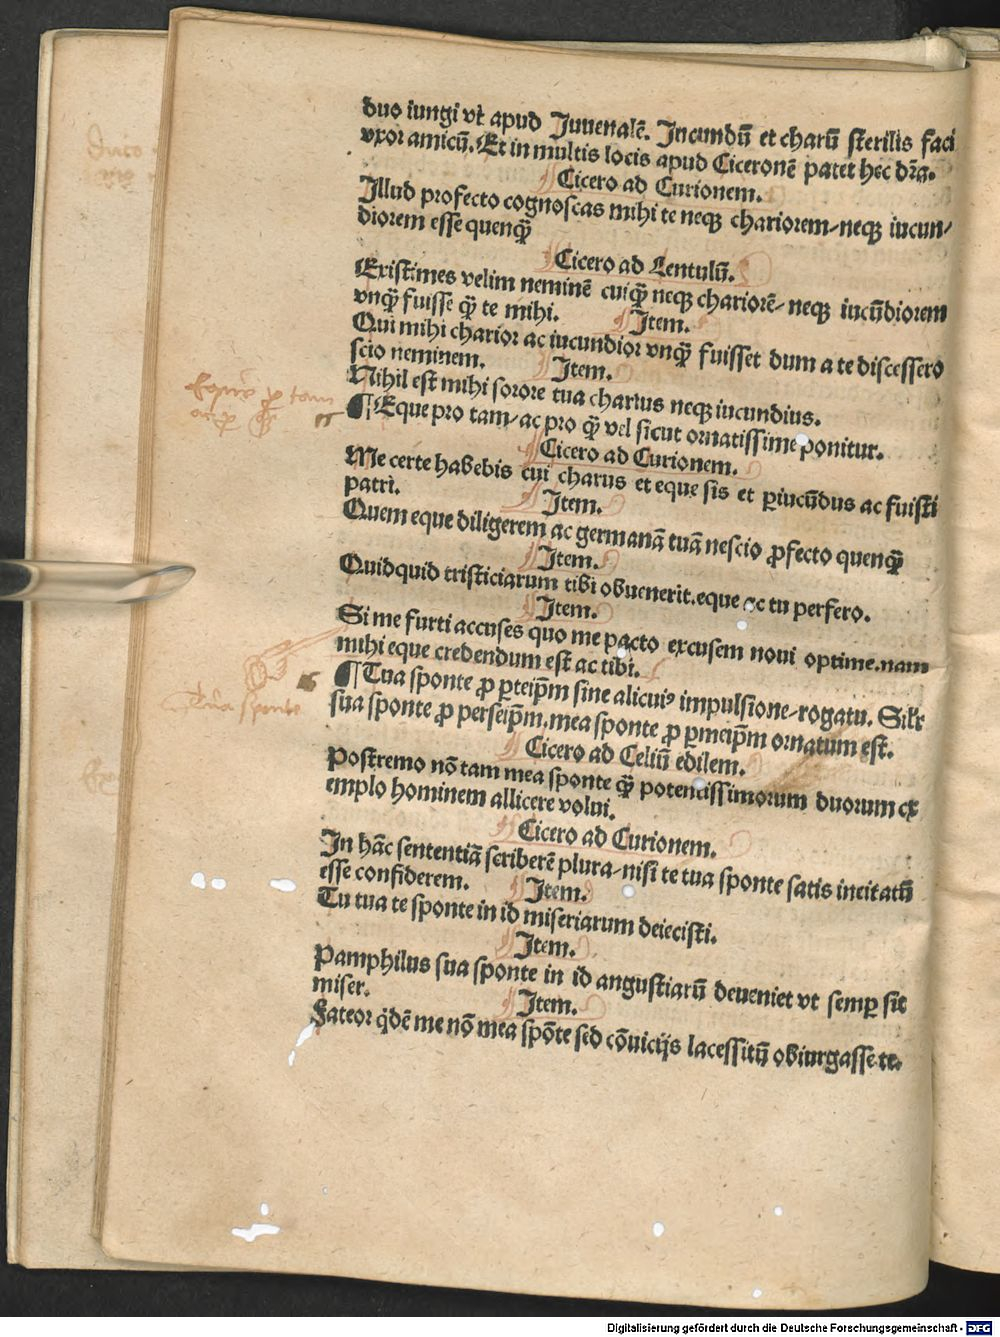 duo iungi vt apud Juuenalē. Jncundū et charū sterilis faci
vxor amicū. Et in multis locis apud Ciceronē patet hec dr̄a.
Cicero ad Curionem.
Jllud profecto cognoscas mihi te neqꝫ chariorem/neqꝫ iucun/
diorem esse quenqꝫ̄
Cicero ad Lentulū.
Existimes velim neminē cuiqꝫ̄ neqꝫ chariorē/ neqꝫ iucūdiorem
vnqꝫ̄ fuisse qꝫ̄ te mihi.
Jtem.
Qui mihi charior ac iucundior vnqꝫ̄ fuisset dum a te discessero
scio neminem.
Jtem.
Nihil est mihi sorore tua charius neqꝫ iucundius.
Eque ꝓ tam
acqꝫ̄
¶Eque pro tam/ac pro qꝫ̄ vel sicut ornatissime ponitur.
Cicero ad Curionem.
Me certe habebis cui charus et eque sis et ꝑiucūdus ac fuisti
patri.
Jtem.
Quem eque diligerem ac germanā tuā nescio ꝓfecto quenqꝫ̄
Jtem.
Quidquid tristiciarum tibi obuenerit.eque ac tu perfero.
Jtem.
Si me furti accuses quo me pacto excusem noui optime.nam
mihi eque credendum est ac tibi.
Tua sponte
¶Tua sponte ꝓ ꝑteip̄m sine alicuiꝰ impulsione/rogatu. Silr̄
sua sponte ꝓ perseip̄m.mea sponte ꝓ ꝑmeip̄m ornatum est.
Cicero ad Celiū edilem.
Postremo nō tam mea sponte qꝫ̄ potentissimorum duorum ex
emplo hominem allicere volui.
Cicero ad Curionem.
Jn hāc sententiā scriberē plura/nisi te tua sponte satis incitatū
esse confiderem.
Jtem.
Tu tua te sponte in id miseriarum deiecisti.
Jtem.
Pamphilus sua sponte in id angustiarū deueniet vt semꝑ sit
miser.
Jtem.
Fateor q̇dē me nō mea spōte sed cōuicijs lacessitū obiurgasse te.
Digitalisierung gefördert durch die Deutsche Forschungsgemeinschaft - DFG